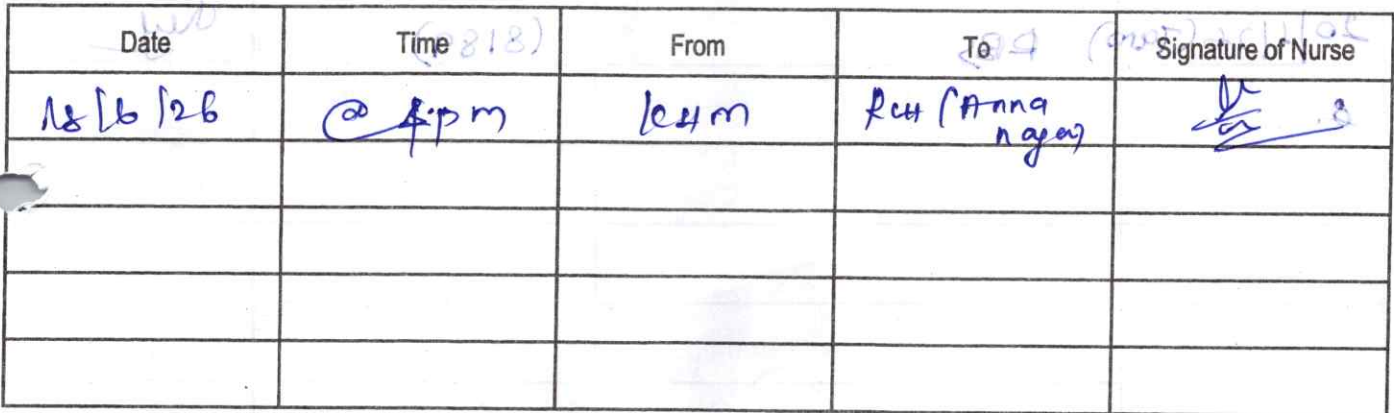 Date Time From To Signature of Nurse
18/6/26 @ 4pm KHM RCH (Anna
nagar)